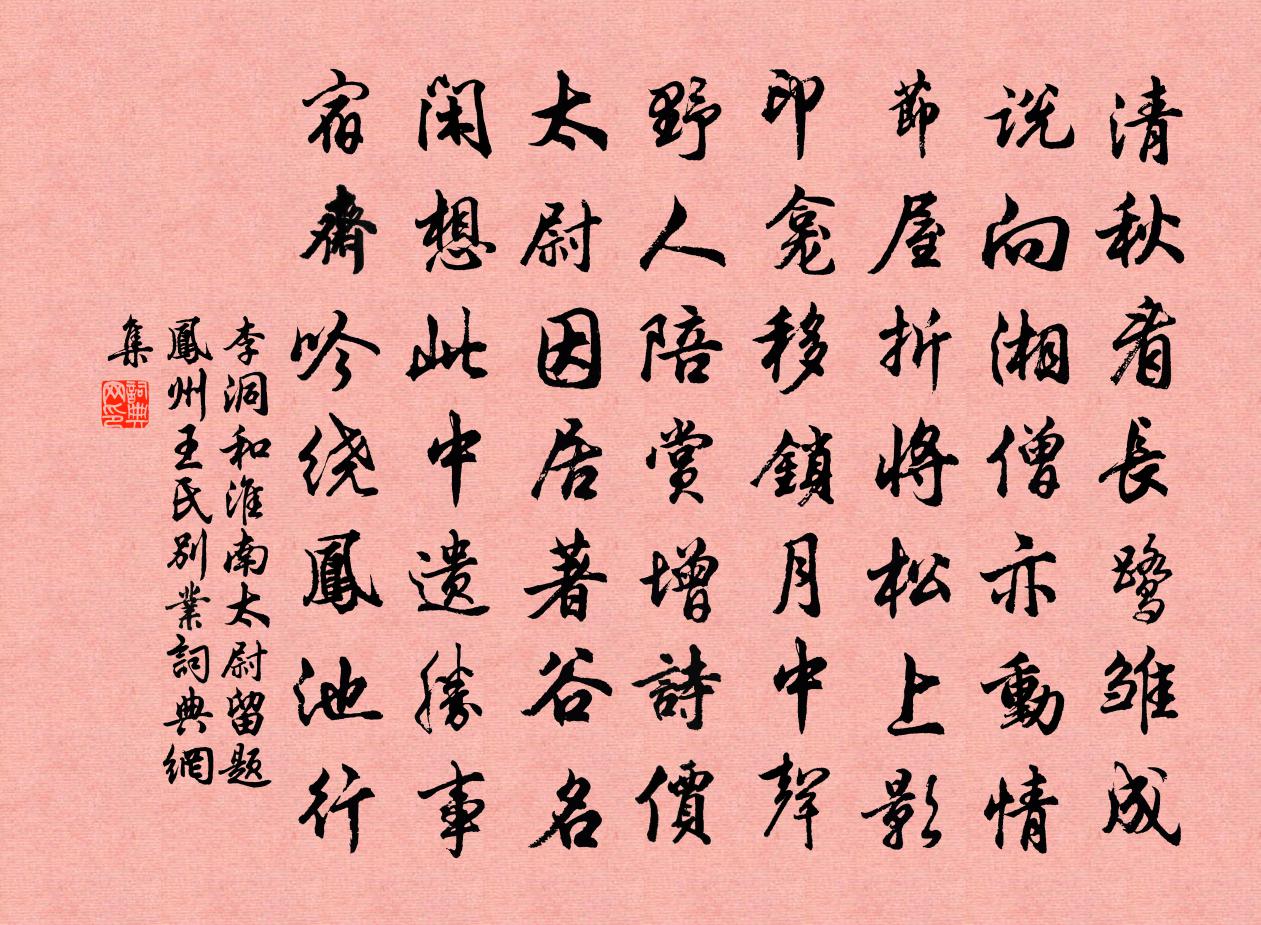 清秋看長鹭雏成
说向湘僧亦動情
節屋折將松上影
印龛移鎖月中聲
野人陪賞增詩價
太尉因居著谷名
闲想此中遗勝事
宿齋吟绕鳳池行
李洞和淮南太尉留题
鳳州王氏別業詞典網
集
詞典网印